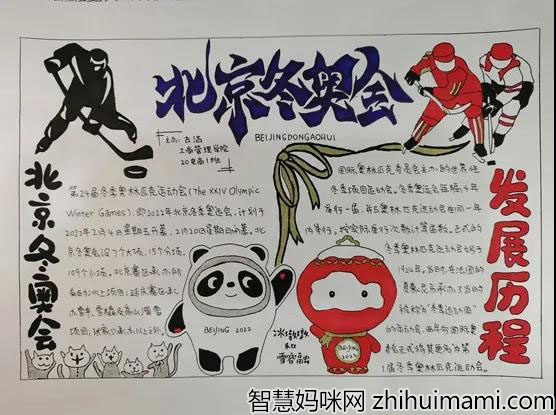 北京冬奥会
BEIJINGDONGAOHUI
主办: 古洁
工商管理学院
20电商1班
北京冬奥会
第24届冬季奥林匹克运动会(The XXIV Olympic
Winter Games), 即2022年北京冬季奥运会, 计划于
2022年2月4日星期五开幕, 2月20日星期日闭幕, 北
京冬奥会设7个大项, 15个分项,
109个小项。北京赛区承办所
有的冰上项目; 延庆赛区承
办雪车、雪橇及高山滑雪
项目;
BEIJING 2022
冰墩墩
和
雪容融
BEIJING
2022
国际奥林匹克委员会主办的世界性
冬季项目运动会。冬季奥运会每隔4年
举行一届, 并与奥林匹克运动会同一年
内举行, 按实际举行次数计算届数。正式的
冬季奥林匹克运动会始于
1924年, 当时, 在法国的
夏蒙尼市承办了当时
被称为“冬季运动周”
的运动会, 两年后国际奥
委会正式将其更名为第
1届冬季奥林匹克运动会。
发展历程
智慧妈咪网 zhihuimami.com